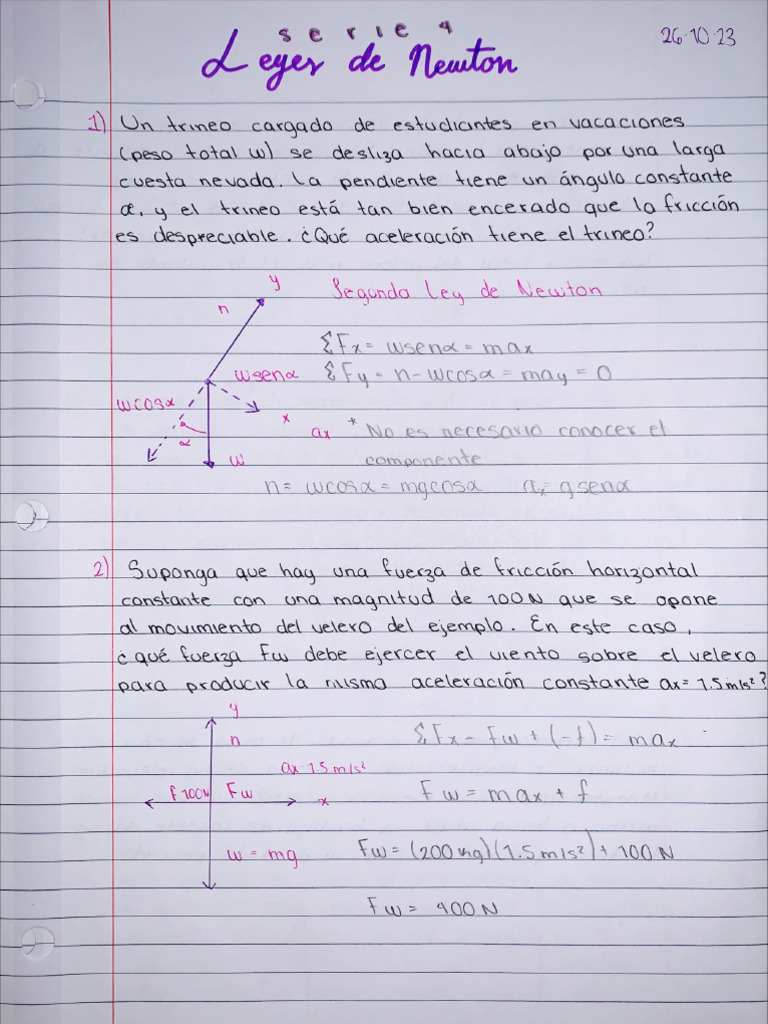 serie 4
26·10·23
Leyes de Newton
1) Un trineo cargado de estudiantes en vacaciones
(peso total w) se desliza hacia abajo por una larga
cuesta nevada. La pendiente tiene un ángulo constante
α, y el trineo está tan bien encerado que la fricción
es despreciable. ¿Qué aceleración tiene el trineo?
y
n
Segunda Ley de Newton
ΣFx = wsenα = max
wsenα
ΣFy = n - wcosα = may = 0
wcosα
x
α
w
ax
* No es necesario conocer el
componente
n = wcosα = mgcosα ax = gsenα
2) Suponga que hay una fuerza de fricción horizontal
constante con una magnitud de 100N que se opone
al movimiento del velero del ejemplo. En este caso,
¿qué fuerza Fw debe ejercer el viento sobre el velero
para producir la misma aceleración constante ax = 1.5m/s²?
y
n
ΣFx = Fw + (-f) = max
ax 1.5 m/s²
f 100N
Fw
x
Fw = max + f
w = mg
Fw = (200 kg)(1.5 m/s²) + 100 N
Fw = 400 N